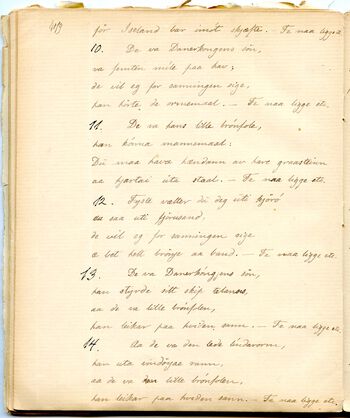 419
för Iseland bar imot skjæfte. — Te naa ligge
10. De va Danerkongens sön,
va femten mile paa hav;
de vil eg for sanningen sige,
han hörte de ormemaal. — Te naa ligge etc.
11. De va hans litle brönfole,
han kunna mannemaal:
Du maa hava hændann av havo graastein
aa hjarta uta staal. — Te naa ligge etc.
12. Fysste vætter du deg uti
aa saa uti fjörusand,
de vil eg for sanningen sige
æ bel hell brönje aa band. — Te naa ligge etc.
13. De va Danerkongjens sön,
han styrde sitt skip
aa de va litle brönfolen,
han leikar paa hviden sann. — Te naa ligge etc.
14. Aa de va den lede lindarorm,
han uta rann,
aa de va den litle brönfolen,
han leikar paa hviden sann. — Te naa ligge etc.